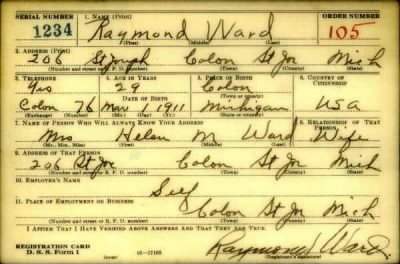 SERIAL NUMBER 1. NAME (Print) ORDER NUMBER
1234 Raymond Ward 105
(First) (Middle) (Last)
2. ADDRESS (Print)
206 St Joseph Colon St Jo Mich
(Number and street or R. F. D. number) (Town) (County) (State)
3. TELEPHONE 4. AGE IN YEARS 5. PLACE OF BIRTH 6. COUNTRY OF CITIZENSHIP
Yes 29 Colon
DATE OF BIRTH (Town or county)
Colon 76 Mar 1 1911 Michigan USA
(Exchange) (Number) (Mo.) (Day) (Yr.) (State or country)
7. NAME OF PERSON WHO WILL ALWAYS KNOW YOUR ADDRESS 8. RELATIONSHIP OF THAT PERSON
Mrs Helen M Ward Wife
(Mr., Mrs., Miss) (First) (Middle) (Last)
9. ADDRESS OF THAT PERSON
206 St Jo Colon St Jo Mich
(Number and street or R. F. D. number) (Town) (County) (State)
10. EMPLOYER'S NAME
Self
11. PLACE OF EMPLOYMENT OR BUSINESS
Colon St Jo Mich
(Number and street or R. F. D. number) (Town) (County) (State)
I AFFIRM THAT I HAVE VERIFIED ABOVE ANSWERS AND THAT THEY ARE TRUE.
REGISTRATION CARD
D. S. S. Form 1 16-17105 Raymond Ward
(Registrant's signature)